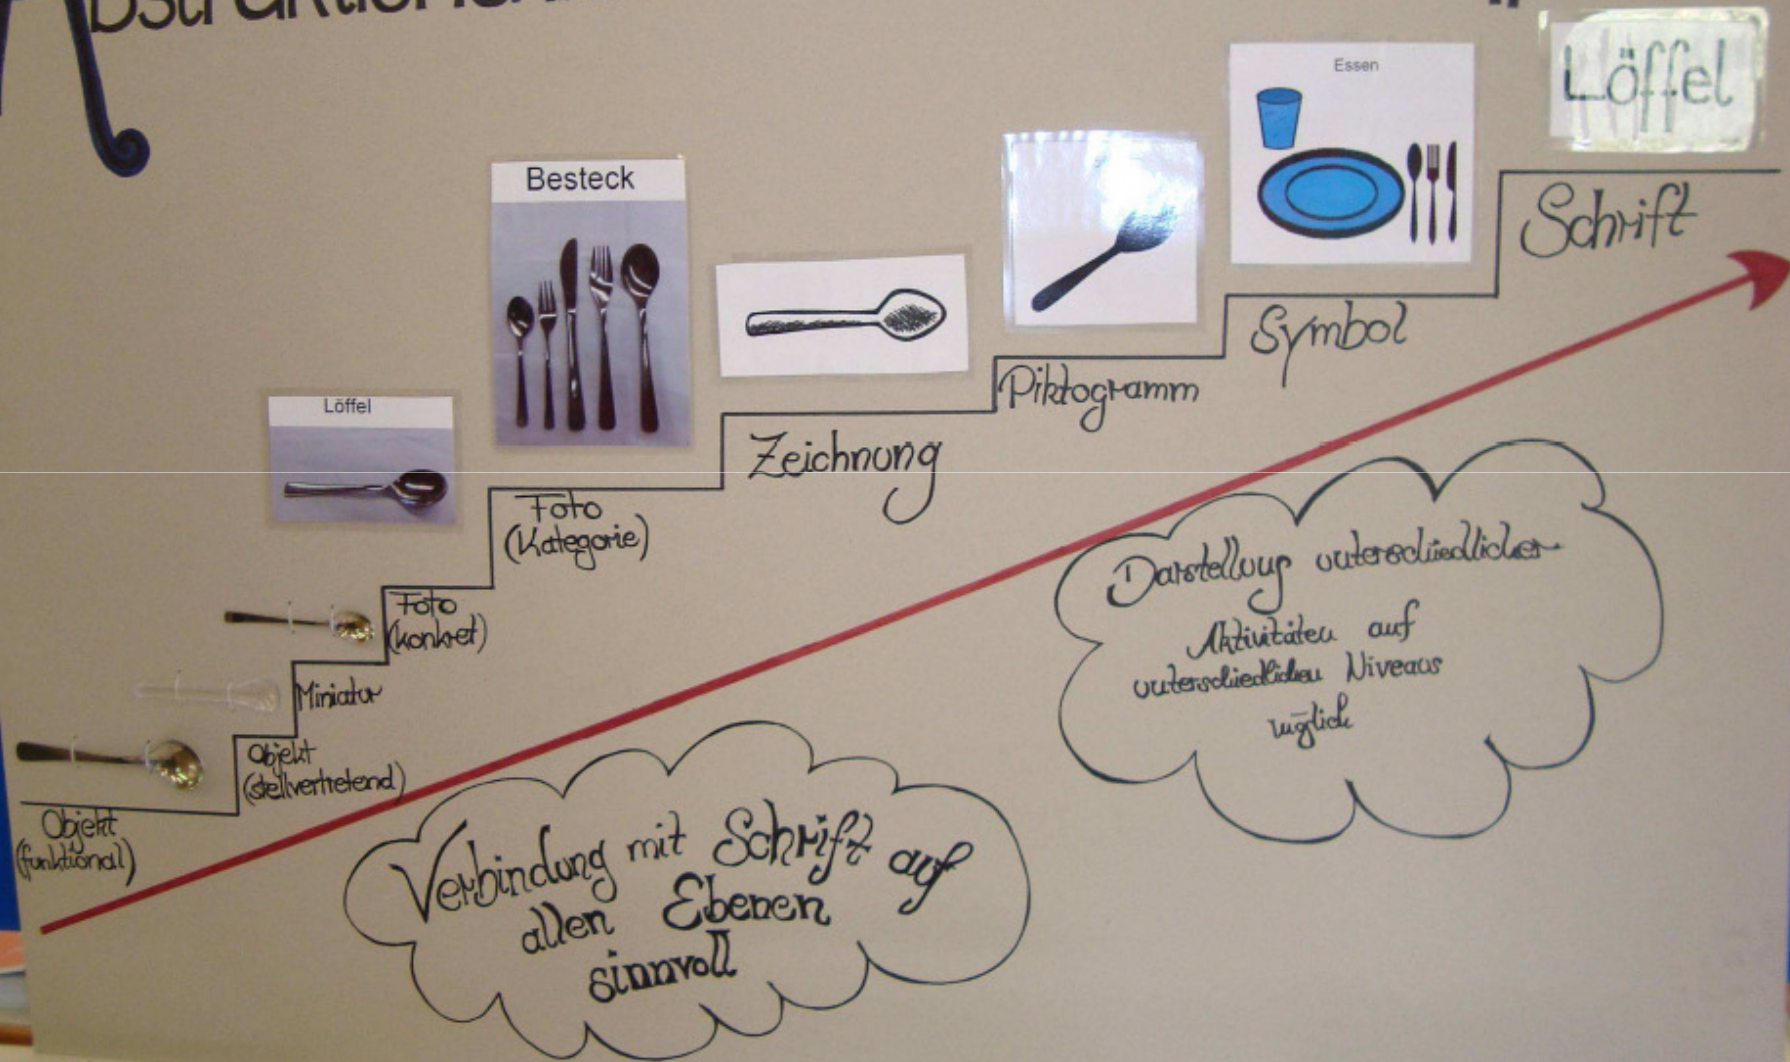 Löffel
Essen
Besteck
Schrift
Symbol
Piktogramm
Löffel
Zeichnung
Foto
(Kategorie)
Foto
(konkret)
Miniatur
Objekt
(stellvertretend)
Objekt
(funktional)
Darstellung unterschiedlicher
Aktivitäten auf
unterschiedlichen Niveaus
möglich
Verbindung mit Schrift auf
allen Ebenen
sinnvoll